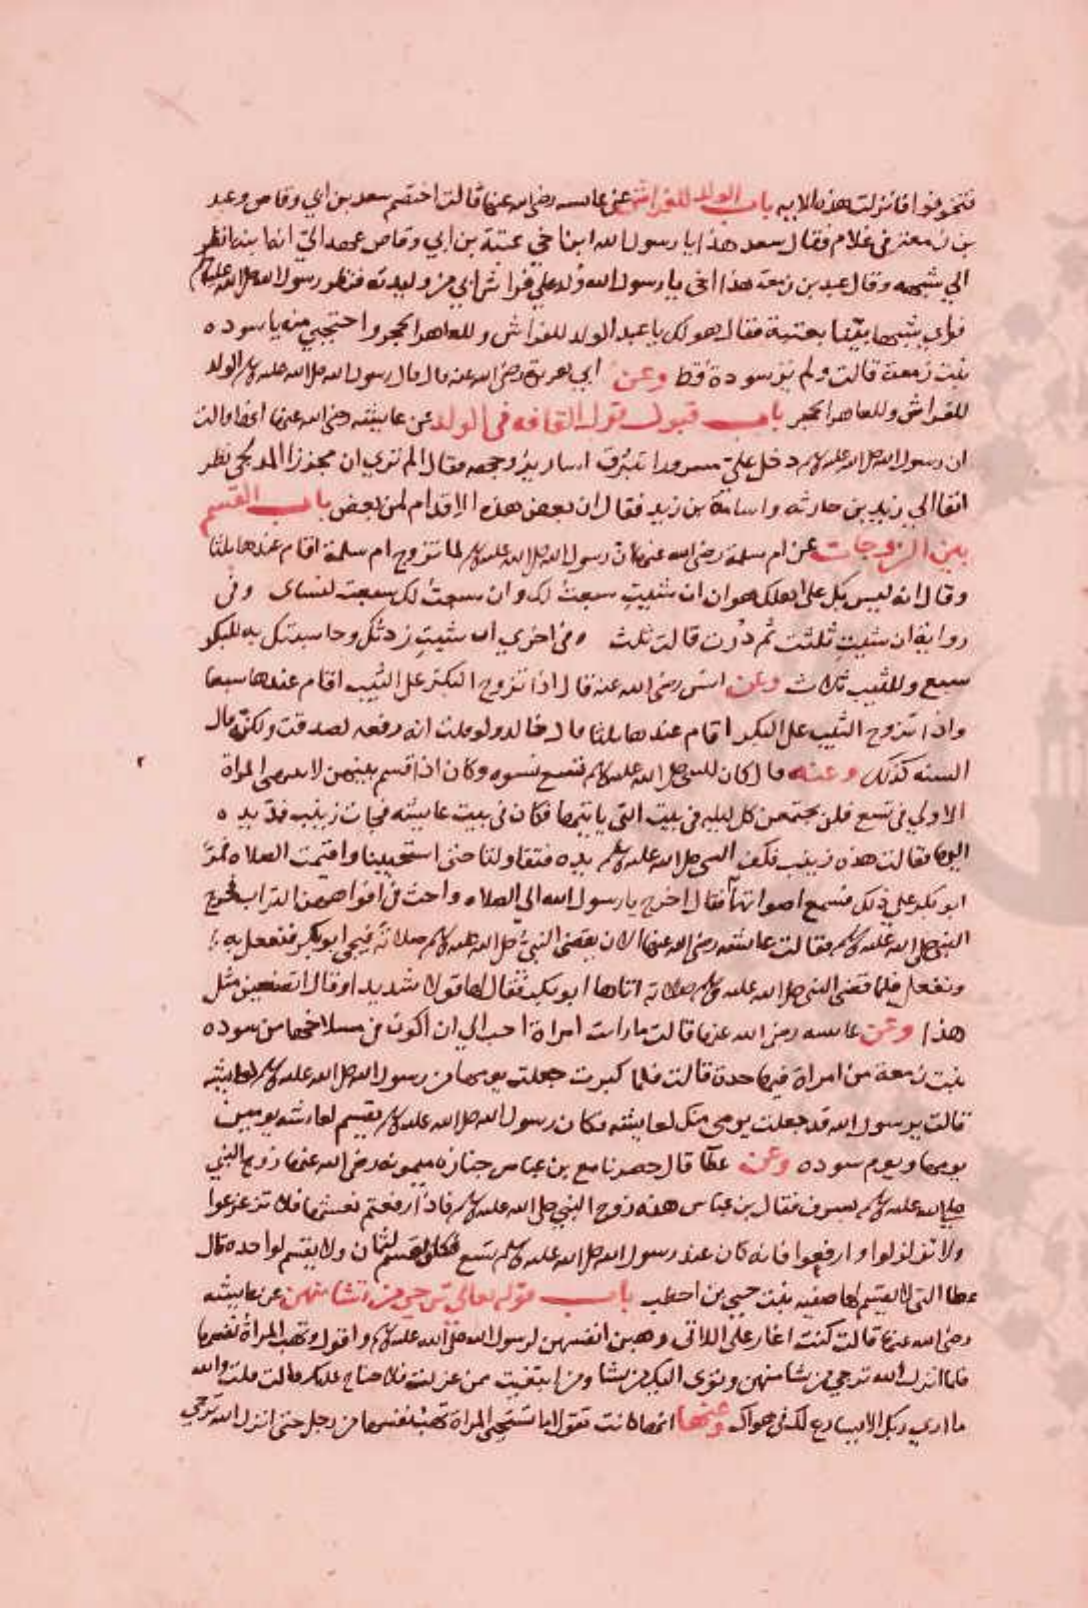 فتخوفوا فانزلت هذه الايه باب الولد للفراش عن عايسه رضي الله عنها قالت اختصم سعد بن ابي وقاص وعبد
بن زمعة في غلام فقال سعد هذا يا رسول الله ابن اخي عتبة بن ابي وقاص عهد الي انه ابنه انظر
الي شبهه وقال عبد بن زمعة هذا اخي يا رسول الله ولد علي فراش ابي من وليدته فنظر رسول الله صلى الله عليه وسلم
فراي شبها بينا بعتبة فقال هو لك يا عبد الولد للفراش وللعاهر الحجر واحتجبي منه يا سوده
بنت زمعة قالت ولم ير سودة قط وعن ابي هريرة رضي الله عنه قال قال رسول الله صلى الله عليه وسلم الولد
للفراش وللعاهر الحجر باب قبول قول القافه في الولد عن عايشه رضي الله عنها انها قالت
ان رسول الله صلى الله عليه وسلم دخل علي مسرورا تبرق اسارير وجهه فقال الم تري ان مجززا المدلجي نظر
انفا الي زيد بن حارثه واسامة بن زيد فقال ان بعض هذه الاقدام لمن بعض باب القسم
بين الزوجات عن ام سلمة رضي الله عنها ان رسول الله صلى الله عليه وسلم لما تزوج ام سلمة اقام عندها ثلثا
وقال انه ليس بك على اهلك هوان ان شئيت سبعت لك وان سبعت لك سبعت لنساى وفي
رواية ان شئيت ثلثت ثم درت قالت ثلث وفي اخري ان شئيت زدتك وحاسبتك به للبكر
سبع وللثيب ثلاث وعن انس رضي الله عنه قال اذا تزوج البكر على الثيب اقام عندها سبعا
واذا تزوج الثيب على البكر اقام عندها ثلثا قال خالد ولو قلت انه رفعه لصدقت ولكنه قال
السنه كذلك وعنه قال كان للنبي صلى الله عليه وسلم تسع نسوه وكان اذا قسم بينهن لا ينتهي الى المراة
الاولي في تسع فكن يجتمعن كل ليله في بيت التي ياتيها فكان في بيت عايشه فجات زينب فمد يده
اليها فقالت هذه زينب فكف النبي صلى الله عليه وسلم يده فتقاولتا حتى استحيتا واقيمت الصلاه فمر
ابو بكر علي ذلك فسمع اصواتهما فقال اخرج يا رسول الله الي الصلاه واحث في افواههن التراب فخرج
النبي صلى الله عليه وسلم فقالت عايشه رضي الله عنها الان يقضي النبي صلى الله عليه وسلم صلاته فيجي ابو بكر فيفعل بي
ويفعل فلما قضى النبي صلى الله عليه وسلم صلاته اتاها ابو بكر فقال لها قولا شديدا وقال اتصنعين مثل
هذا وعن عايسه رضي الله عنها قالت ما رايت امراة احب الي ان اكون في مسلاخها من سوده
بنت زمعة من امراة فيها حدة قالت فلما كبرت جعلت يومها من رسول الله صلى الله عليه وسلم لعايشه
قالت يرسول الله قد جعلت يومي منك لعايشه فكان رسول الله صلى الله عليه وسلم يقسم لعايشه يومين
يومها ويوم سوده وعن عطا قال حضرنا مع بن عباس جنازه ميمونه رضي الله عنها زوج النبي
صلى الله عليه وسلم بسرف فقال بن عباس هذه زوج النبي صلى الله عليه وسلم فاذا رفعتم نعشها فلا تزعزعوا
ولا تزلزلوا وارفعوا فانه كان عند رسول الله صلى الله عليه وسلم تسع فكان يقسم لثمان ولا يقسم لواحده قال
عطا التي لا يقسم لها صفيه بنت حيي بن اخطب باب قوله تعالى ترجي من تشا منهن عن عايشه
رضي الله عنها قالت كنت اغار على اللاتي وهبن انفسهن لرسول الله صلى الله عليه وسلم واقول وتهب المراة نفسها
فلما انزل الله ترجي من تشا منهن وتوى اليك من تشا ومن ابتغيت ممن عزلت فلا جناح عليك قالت قلت والله
ما اري ربك الا يسارع لك في هواك وعنها انها كانت تقول اما تستحي المراة تهب نفسها من رجل حتى انزل الله ترجي